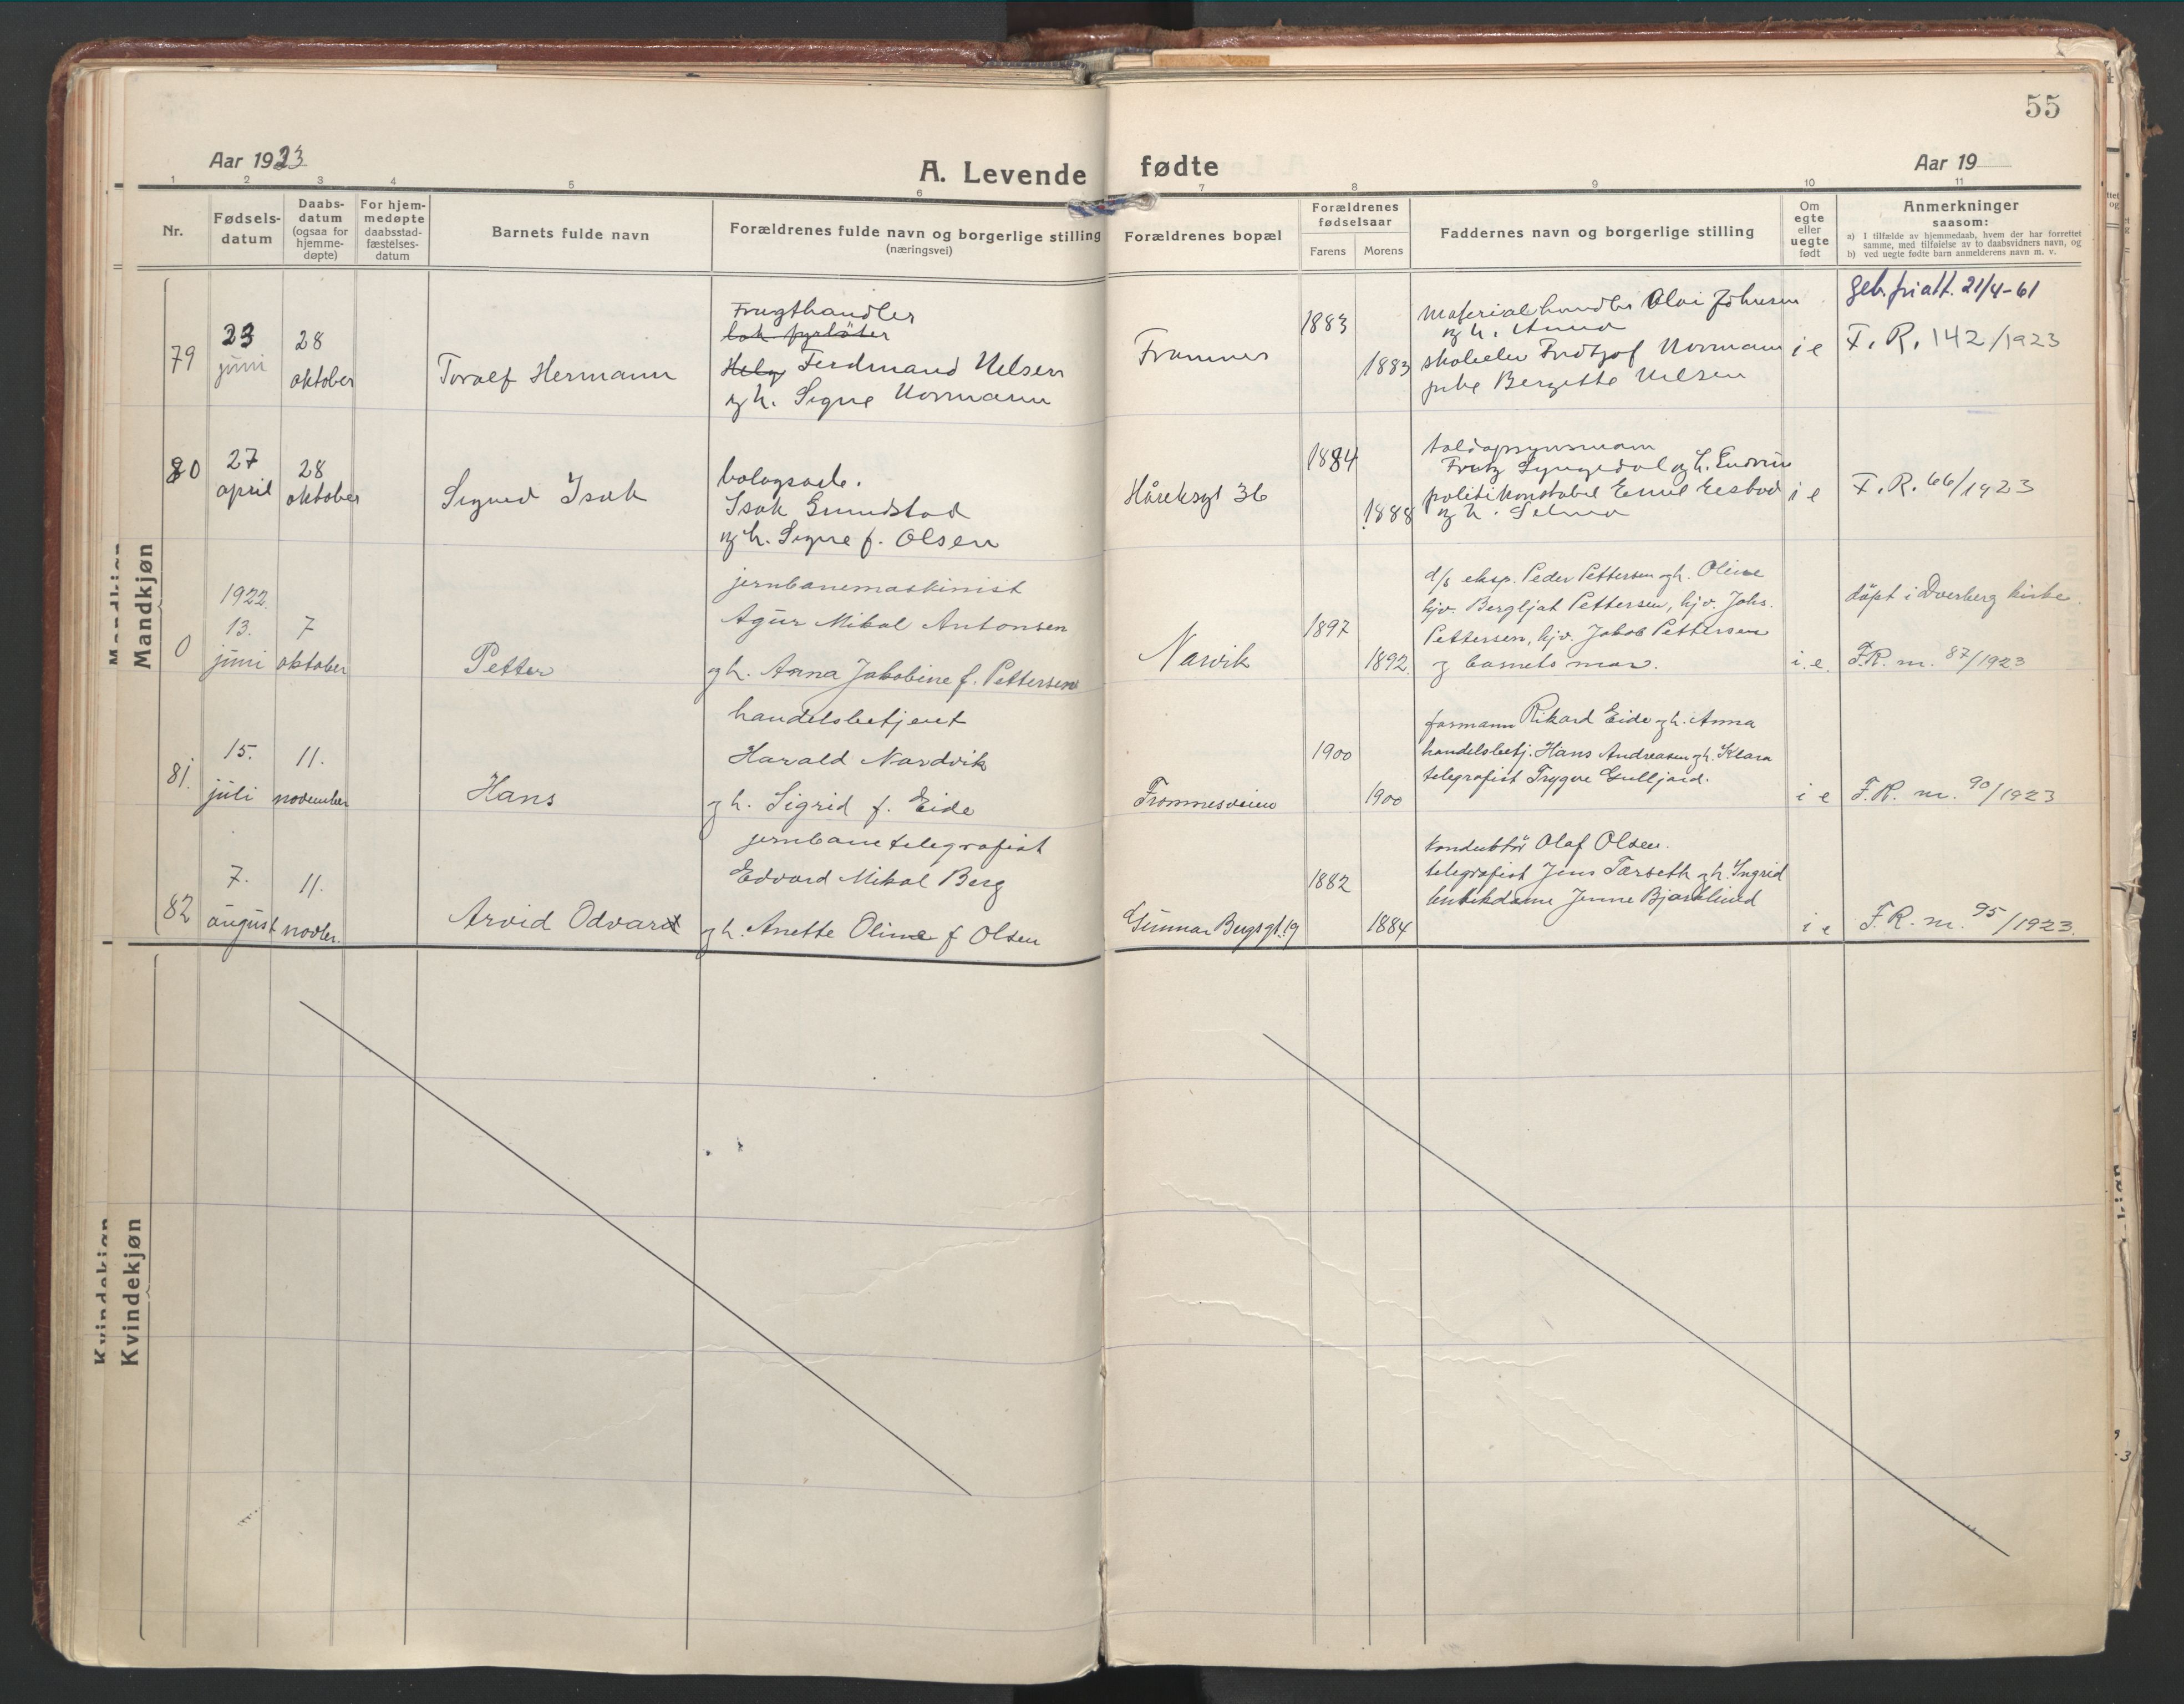 55
Aar 1923
A. Levende fødte
Aar 19
1 2 3 4 5 6 7 8 9 10 11
Nr.
Fødsels-
datum
Daabs-
datum
(ogsaa for
hjemme-
døpte)
For hjem-
medøpte
daabsstad-
fæstelses-
datum
Barnets fulde navn
Forældrenes fulde navn og borgerlige stilling
(næringsvei)
Forældrenes bopæl
Forældrenes
fødselsaar
Farens
Morens
Faddernes navn og borgerlige stilling
Om
egte
eller
uegte
født
Anmerkninger
saasom:
a) I tilfælde av hjemmedaab, hvem der har forrettet
samme, med tilføielse av to daabsvidners navn, og
b) ved uegte fødte barn anmelderens navn m. v.
Mandkjøn
79
23
juni
28
oktober
Toralf Hermann
Frugthandler
lok. fyrbøter
Helg Ferdinand Nilsen
og h. Signe Normann
Framnes
1883
1883
Materialhandler Olai Johnsen
og h. Anna
skoleelev Fridtjof Normann
pike Bergitte Nilsen
i e
Geb. friatt. 21/4-61
F. R. 142/1923
80
27
april
28
oktober
Sigurd Isak
bolagsarb.
Isak Grundstad
og h. Signe f. Olsen
Håreksgt 36
1884
1888
toldopsynsmann
Fritz Lyngedal og h.
politikonstabel Emil
og h. Selma
i e
F. R. 66/1923
0
1922.
13.
juni
7
oktober
Petter
jernbanemaskinist
Agur Mikal Antonsen
og h. Anna Jakobine f. Pettersen
Narvik
1897
1892.
d/s eksp. Peder Pettersen og h. Oline
hjv. Bergljot Pettersen, hjv. Johs.
Pettersen, hjv. Jakob Pettersen
og barnets mor.
i. e.
døpt i Dverberg kirke.
F.R. nr. 87/1923
81.
15.
juli
11.
november
Hans
handelsbetjent
Harald Nordvik
og h. Sigrid f. Eide
Frammesveien
1900
1900
formann Rikard Eide og h. Anna
handelsbetj. Hans Andreasen og h. Klara
telegrafist Trygve Gulljord.
i e
F.R. nr. 90/1923
82
7.
august
11.
novbr.
Arvid Odvard
jernbanetelegrafist
Edvard Mikal Berg
og h. Anette Oline f Olsen
Gunnar Bergsgt. 19
1882
1884
konduktør Olaf Olsen.
telegrafist Jens Tarseth og h. Ingrid
butikdame Jenne Bjørklund
i e
F.R. nr. 95/1923.
Kvindekjøn